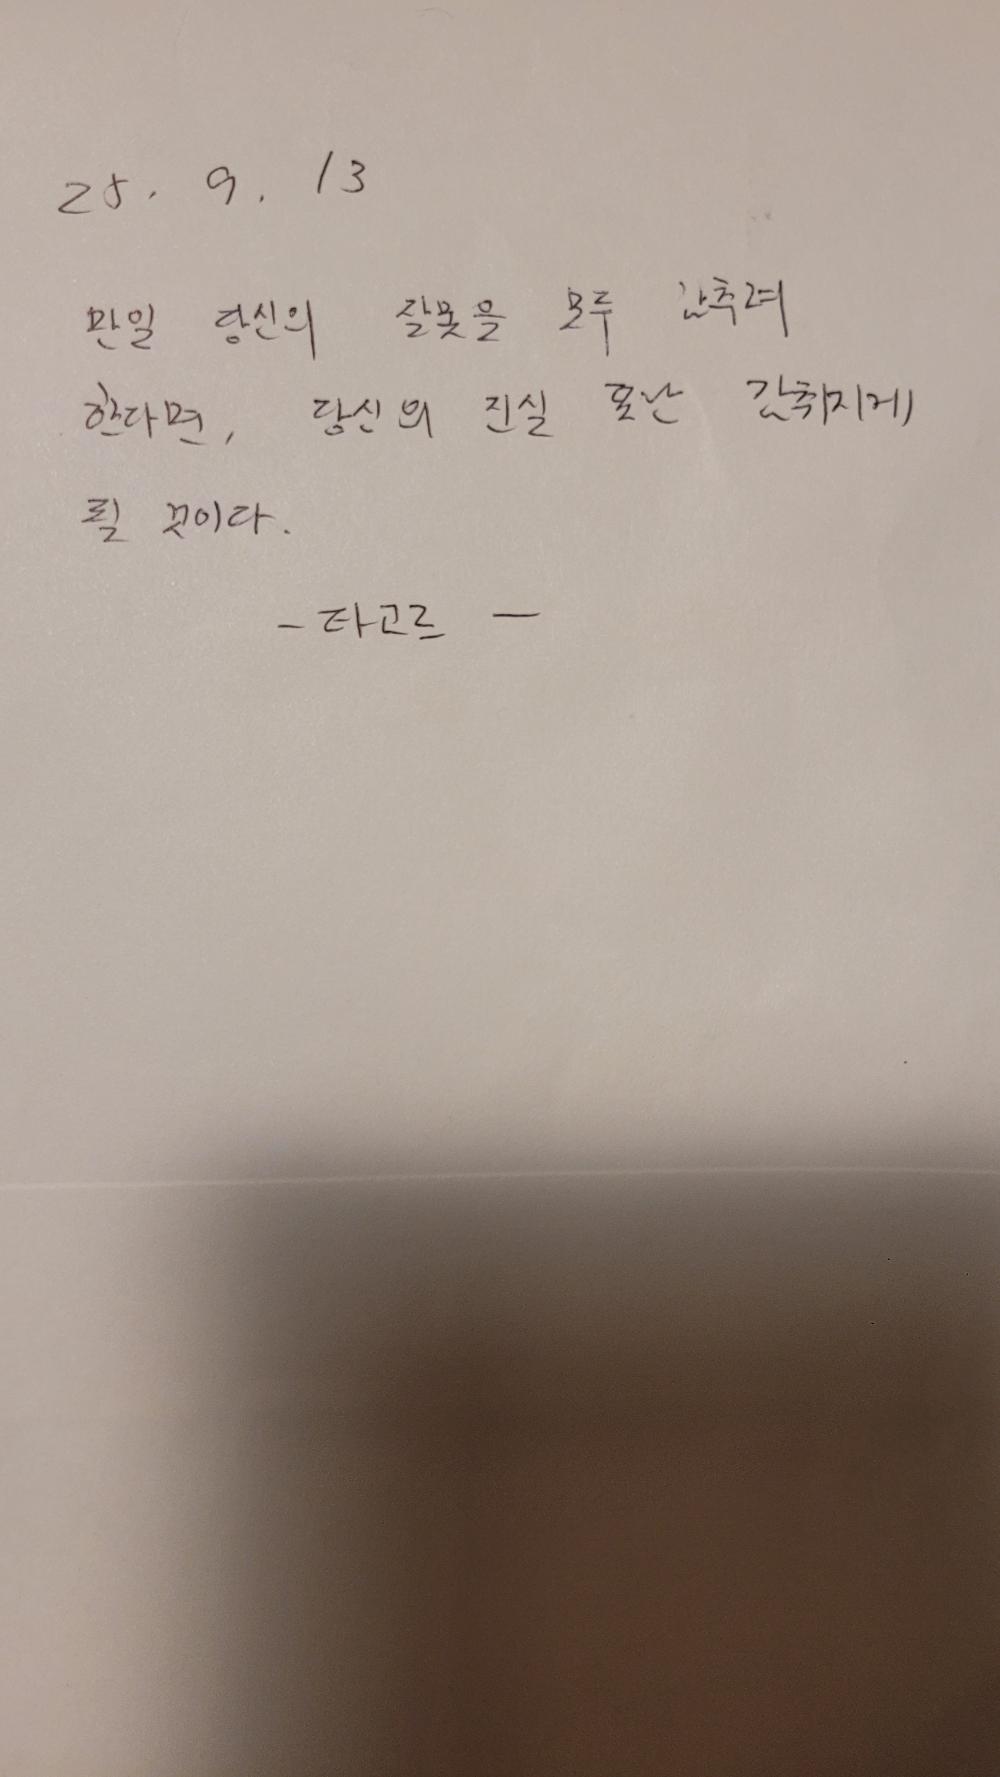 25. 9. 13
만일 당신의 잘못을 모두 감추려
한다면, 당신의 진실 또한 감춰지게
될 것이다.
- 타고르 -